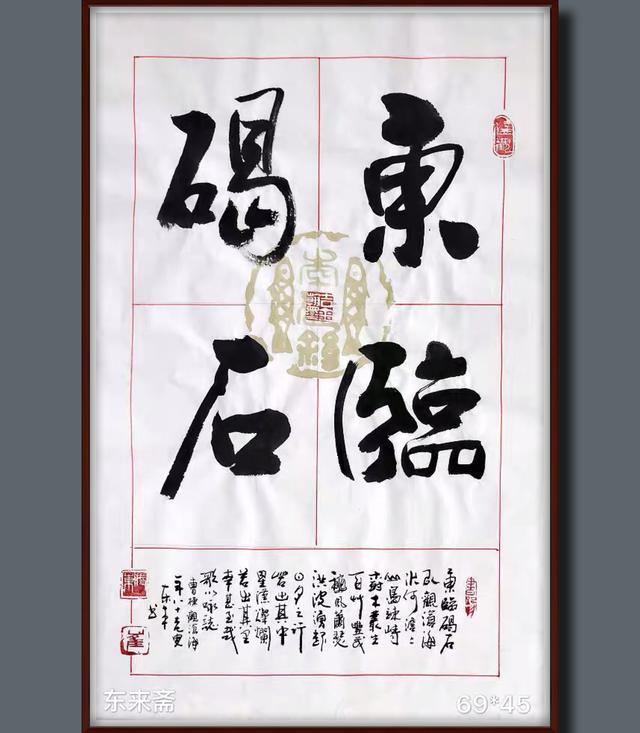 東臨
碣石
東臨碣石
以觀滄海
水何澹〻
山島竦峙
樹木叢生
百草豐茂
秋風蕭瑟
洪波湧起
日月之行
若出其中
星漢燦爛
若出其里
幸甚至哉
歌以詠志
曹操觀滄海
东来斋
69*45